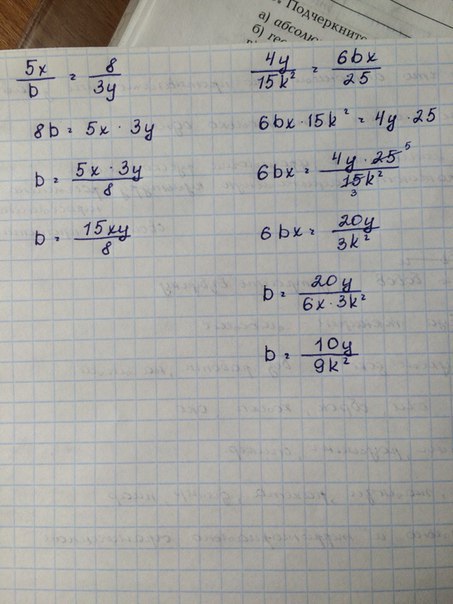 Подчеркните
а) абсолю
б) гео
5x/b = 8/3y
8b = 5x · 3y
b = 5x · 3y/8
b = 15xy/8
4y/15k² = 6bx/25
6bx · 15k² = 4y · 25
6bx = 4y · 25 5/15k² 3
6bx = 20y/3k²
b = 20y/6x · 3k²
b = 10y/9k²